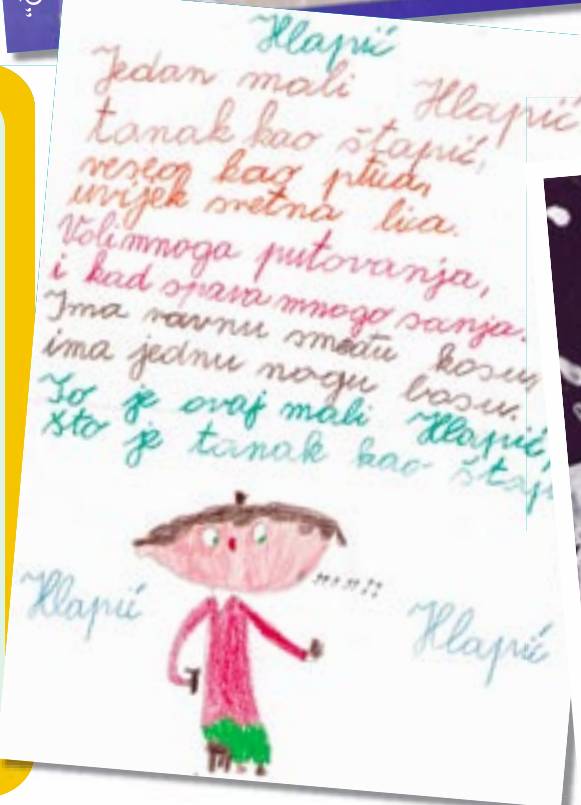 Hlapić
Jedan mali Hlapić
tanak kao štapić,
veseo kao ptica,
uvijek sretna lica.
Voli mnoga putovanja,
i kad spava mnogo sanja.
Ima ravnu smeđu kosu,
ima jednu nogu bosu.
To je ovaj mali Hlapić,
što je tanak kao štap
Hlapić
Hlapić